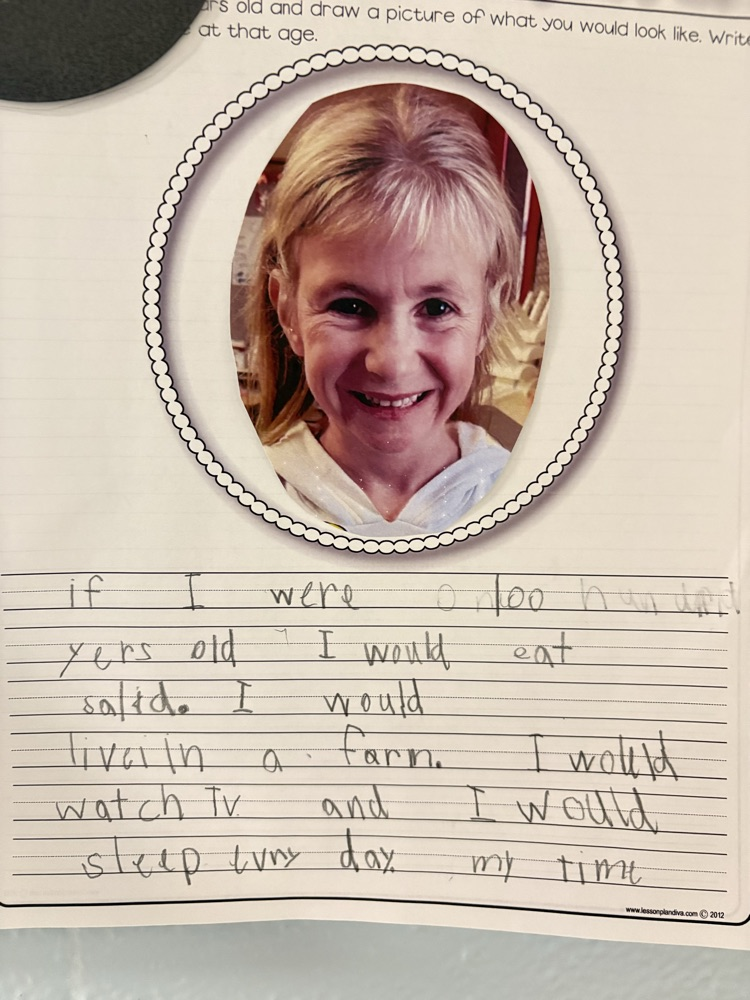 ars old and draw a picture of what you would look like. Write
at that age.
if I were One 100 hundred
yers old I would eat
salid. I would
live in a farm. I would
watch TV and I would
sleep evry day. my time
www.lessonplandiva.com © 2012